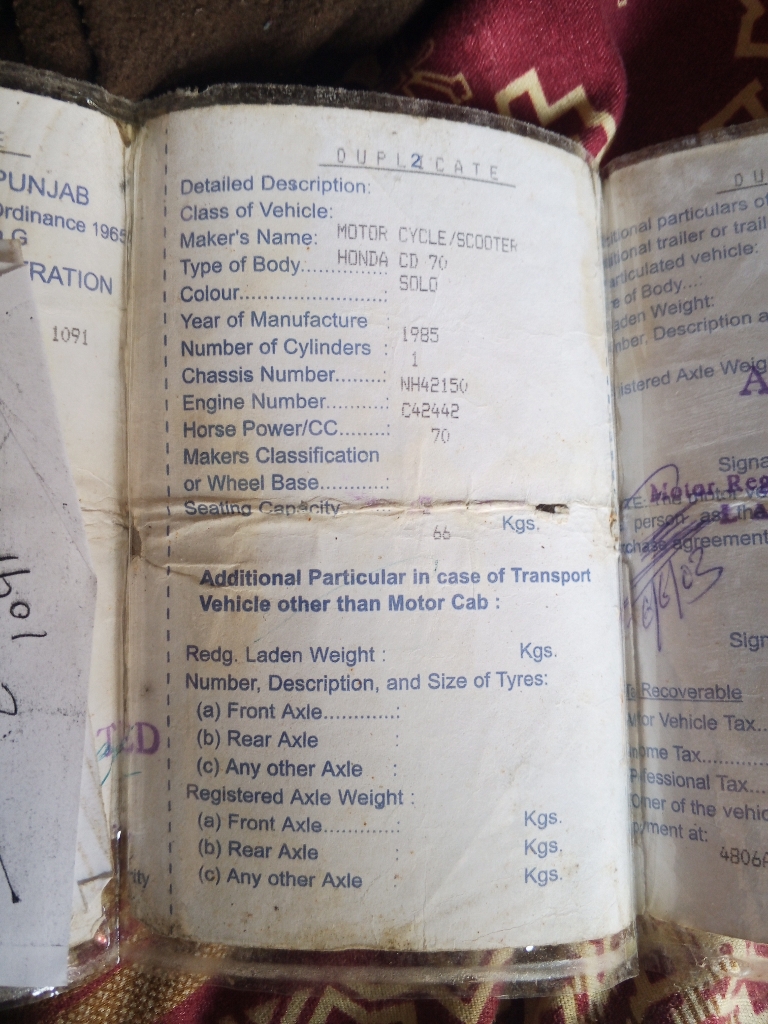 PUNJAB
Ordinance 1965
TRATION
1091
1601
TED
rity
DUPLICATE
2
Detailed Description:
Class of Vehicle:
Maker's Name: MOTOR CYCLE/SCOOTER
Type of Body............ HONDA CD 70
Colour........................: SOLO
Year of Manufacture :
Number of Cylinders : 1985
Chassis Number........: 1
Engine Number.........: NH42150
Horse Power/CC.......: C42442
70
Makers Classification
or Wheel Base...........:
Seating Capacity 2
66 Kgs.
Additional Particular in case of Transport
Vehicle other than Motor Cab :
Redg. Laden Weight : Kgs.
Number, Description, and Size of Tyres:
(a) Front Axle............:
(b) Rear Axle :
(c) Any other Axle :
Registered Axle Weight :
(a) Front Axle............: Kgs.
(b) Rear Axle : Kgs.
(c) Any other Axle : Kgs.
DU
tional particulars of
tional trailer or trail
articulated vehicle:
e of Body...:
aden Weight:
mber, Description a
istered Axle Weig
A
Signa
Motor Reg
person, as the
rchase agreement
6/6/03
Sign
Recoverable
Vehicle Tax...
ome Tax............
fessional Tax...
ner of the vehic
yment at:
4806A